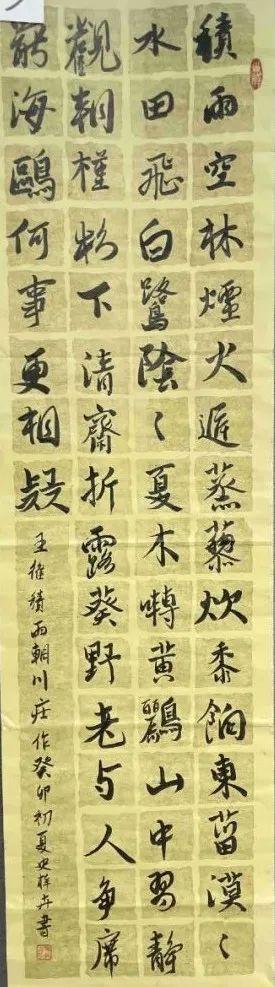 積雨空林煙火遲蒸藜炊黍餉東菑漠〻
水田飛白鷺陰〻夏木囀黄鸝山中習靜
觀朝槿松下清齋折露葵野老与人争席
罷海鷗何事更相疑
王維積雨輞川庄作癸卯初夏史祥卉書